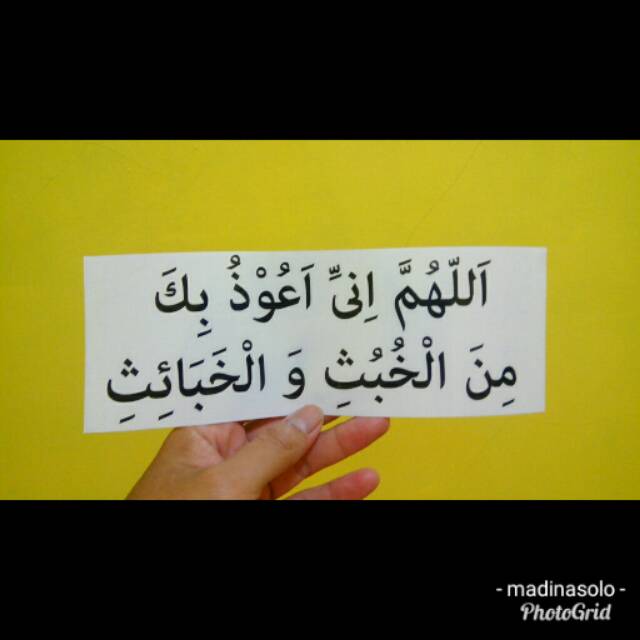 اَللّٰهُمَّ اِنىِّ اَعُوْذُ بِكَ
مِنَ الْخُبُثِ وَ الْخَبَائِثِ
- madinasolo -
PhotoGrid